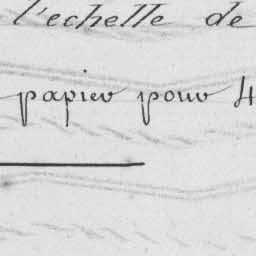 l'echelle de
papier pour 4